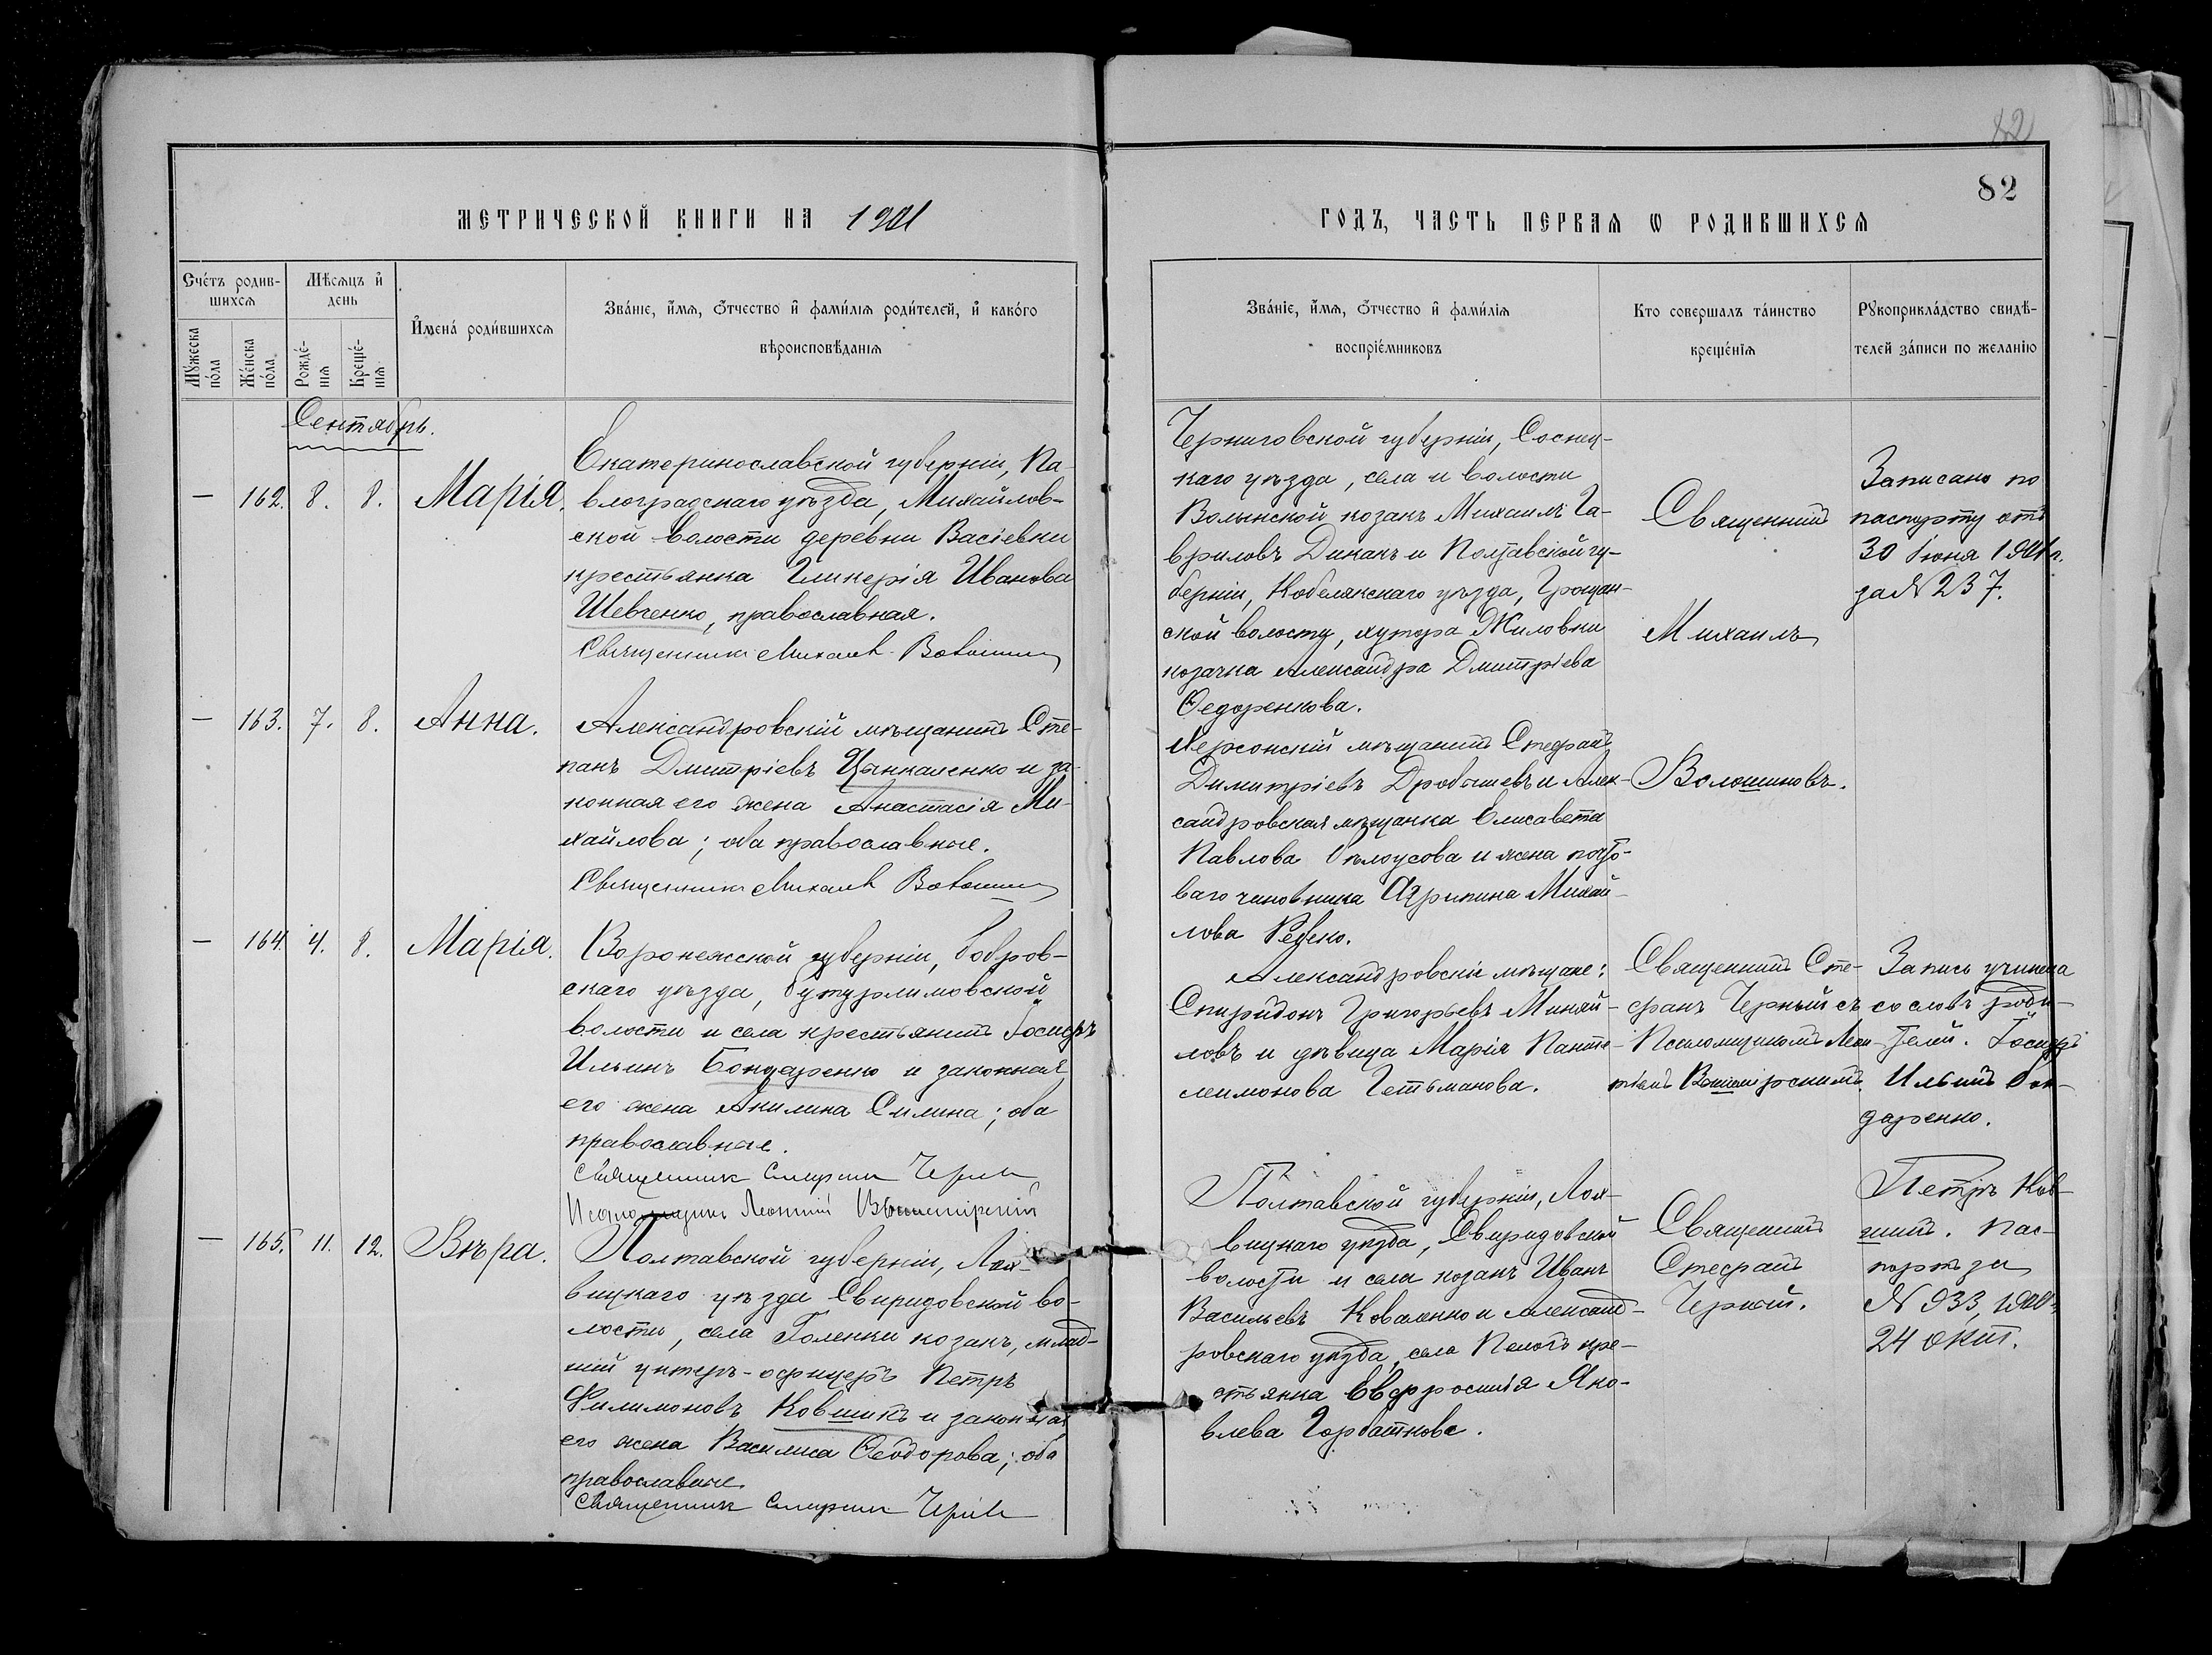 82
82
МЕТРИЧЕСКОЙ КНИГИ НА 1901
ГОДЪ, ЧАСТЬ ПЕРВАЯ Ѡ РОДИВШИХСЯ
Счетъ родив-
шихся
Мѣсяцъ и
день
Мужеска
пола
Женска
пола.
Рожде-
нія
Креще-
нія
Имена родившихся
Званіе, имя, отчество и фамилія родителей, и какого
вѣроисповѣданія
Званіе, имя, отчество и фамилія
воспріемниковъ
Кто совершалъ таинство
крещенія
Рукоприкладство свидѣ-
телей записи по желанію
Сентябрь.
— 162. 8. 8. Марія.
Екатеринославской губерніи, Па-
влоградскаго уѣзда, Михайлов-
ской волости деревни Васіевки
крестьянка Гликерія Иванова
Шевченко, православная.
Священникъ Михаилъ Волошинов
Черниговской губерніи, Сосниц-
каго уѣзда, села и волости
Волынской козакъ Михаилъ Га-
вриловъ Диканъ и Полтавской гу-
берніи, Кобелякскаго уѣзда,
ской волости, хутора Жиловки
козачка Александра Дмитріева
Ѳедоренкова.
Священникъ
Михаилъ
Волошиновъ.
Записано по
паспорту отъ
30 Іюня 1901 г.
за № 237.
— 163. 7. 8. Анна.
Александровскій мѣщанинъ Сте-
панъ Дмитріевъ Цынкаленко и за-
конная его жена Анастасія Ми-
хайлова; оба православные.
Священникъ Михаилъ Волошинов
Херсонскій мѣщанинъ Стефанъ
Димитріевъ Дробышевъ и Алек-
сандровская мѣщанка Елисавета
Павлова Бѣлоусова и жена почто-
ваго чиновника Агрипина Михай-
лова Редько.
— 164. 4. 8. Марія.
Воронежской губерніи, Бобров-
скаго уѣзда, Бутурлиновской
волости и села крестьянинъ Іосифъ
Ильинъ Бондаренко и законная
его жена Акилина Силина; оба
православные.
Священникъ Стефанъ Черный
Псаломщикъ Леонтій
Александровскіе мѣщане:
Спиридонъ Григорьевъ Миняй-
ловъ и дѣвица Марія Панте-
леимонова Гетьманова.
Священникъ Сте-
фанъ Черный съ
Псаломщикомъ Леон-
тіемъ
Запись учинена
со словъ роди-
телей. Іосифъ
Ильинъ Бон-
даренко.
— 165. 11. 12. Вѣра.
Полтавской губерніи, Лох-
вицкаго уѣзда Свиридовской во-
лости, села Голенки козакъ, млад-
шій унтеръ-офицеръ Петръ
Филимоновъ Ковшикъ и законная
его жена Василиса Ѳеодорова; оба
православные.
Священникъ Стефанъ Черный
Полтавской губерніи, Лох-
вицкаго уѣзда, Свиридовской
волости и села козакъ Иванъ
Васильевъ Коваленко и Александ-
ровскаго уѣзда, села Пологъ кре-
стьянка Евфросинія Яко-
влева Горбаткова.
Священникъ
Стефанъ
Черный.
Петръ Ков-
шикъ. Пас-
портъ за
№ 933, 1900 г.
24 окт.